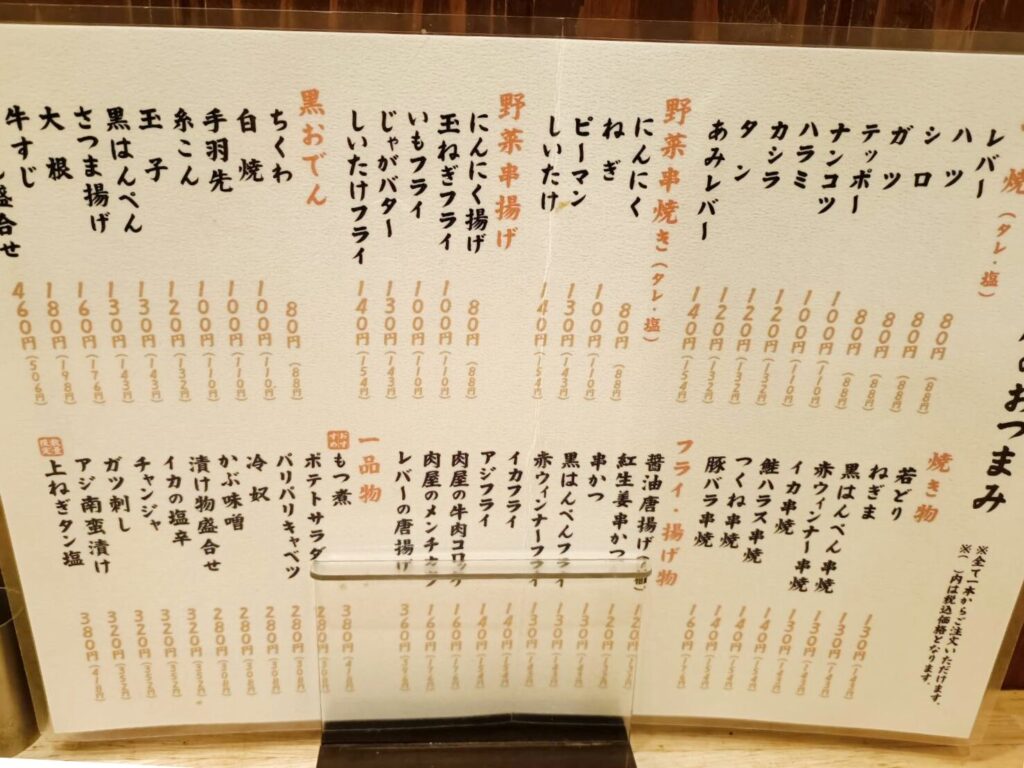 のおつまみ
※全て一本からご注文いただけます。
※(　)内は税込価格となります。
焼(タレ・塩)
レバー 80円(88円)
ハツ 80円(88円)
シロ 80円(88円)
ガツ 80円(88円)
テッポー 100円(110円)
ナンコツ 100円(110円)
ハラミ 120円(132円)
カシラ 120円(132円)
タン 120円(132円)
あみレバー 140円(154円)
野菜串焼き(タレ・塩)
にんにく 80円(88円)
ねぎ 100円(110円)
ピーマン 130円(143円)
しいたけ 140円(154円)
野菜串揚げ
にんにく揚げ 80円(88円)
玉ねぎフライ 100円(110円)
いもフライ 100円(110円)
じゃがバター 130円(143円)
しいたけフライ 140円(154円)
黒おでん
ちくわ 80円(88円)
白焼 100円(110円)
手羽先 100円(110円)
糸こん 100円(110円)
玉子 120円(132円)
黒はんぺん 130円(143円)
さつま揚げ 130円(143円)
大根 160円(176円)
牛すじ 180円(198円)
盛合せ 460円(506円)
焼き物
若どり 130円(143円)
ねぎま 130円(143円)
黒はんぺん串焼 130円(143円)
赤ウィンナー串焼 130円(143円)
イカ串焼 140円(154円)
鮭ハラス串焼 140円(154円)
つくね串焼 140円(154円)
豚バラ串焼 160円(176円)
フライ・揚げ物
醤油唐揚げ 120円(132円)
紅生姜串かつ 120円(132円)
串かつ 130円(143円)
黒はんぺんフライ 130円(143円)
赤ウィンナーフライ 130円(143円)
イカフライ 140円(154円)
アジフライ 140円(154円)
肉屋の牛肉コロッケ 160円(176円)
肉屋のメンチカツ 160円(176円)
レバーの唐揚げ 360円(396円)
一品物
おすすめ もつ煮 380円(418円)
ポテトサラダ 280円(308円)
バリバリキャベツ 280円(308円)
冷奴 280円(308円)
かぶ味噌 280円(308円)
漬け物盛合せ 320円(352円)
イカの塩辛 320円(352円)
チャンジャ 320円(352円)
ガツ刺し 320円(352円)
アジ南蛮漬け 320円(352円)
数量限定 上ねぎタン塩 380円(418円)